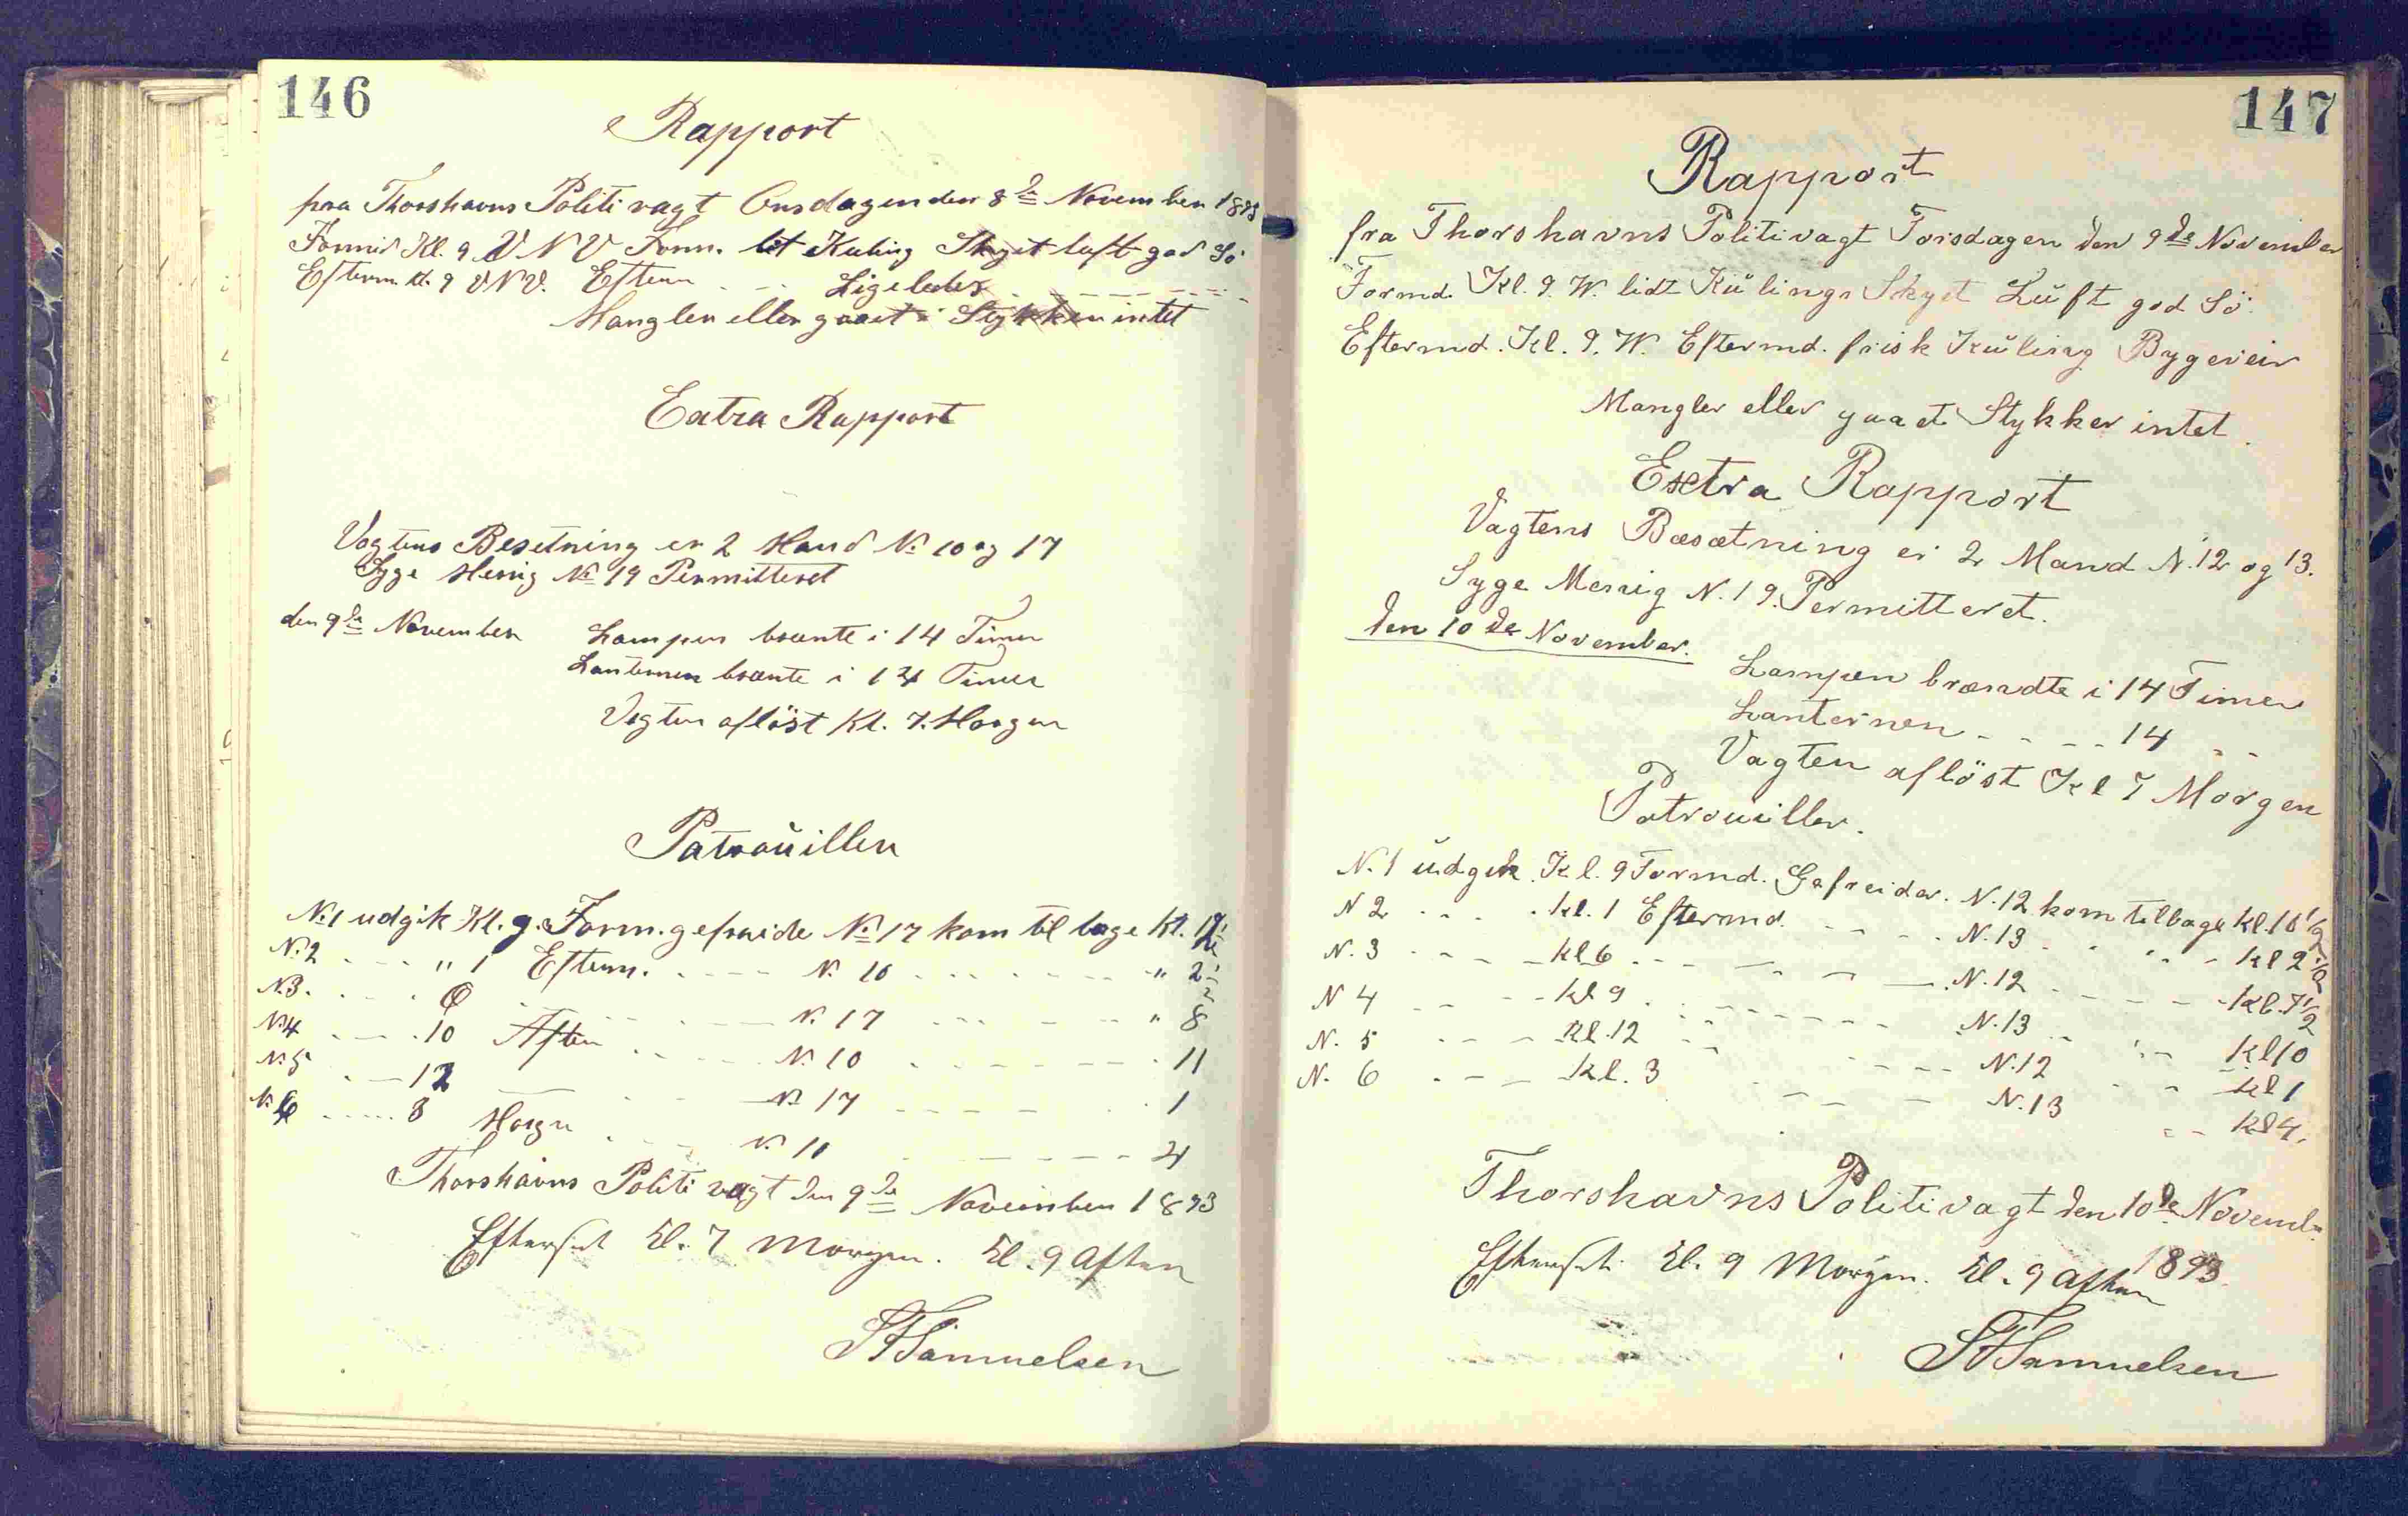 146
Rapport
fra Thorshavns Politivagt Onsdagen den 8de November 1893
Formid Kl. 9 V N V Form. let Kuling Skyet luft god Sö
Efterm. Kl. 9 V N V. Efterm - - - Ligeledes - - - - - -
Mangler eller gaaet i Stykker intet
Extra Rapport
Vagtens Besetning er 2 Mand No 10 og 17
Syge Menig No 19 Permitteret
den 9de November Lampen brænte i 14 Timer
Lanternen brænte i 14 Timer
Vagten aflöst Kl. 7. Morgen
Patrouiller
No 1 udgik Kl. 9. Form. gefreide No 17 kom til bage Kl.
No 2 - - - " 1 Efterm. - - - - No 10 - - - - - - " 2 1/2
N 3. - - - 6 - - - - No 17 - - - - - " 8
No 4 - - - 10 Aften - - - - No 10 - - - - - 11
No 5 - - 12 - - - No 17 - - - - - 1
No 6 - - - - 3 Morgn - - - No 10 - - - - - 4
Thorshavns Politi vagt den 9de November 1893
Efterset Kl. 7 Morgen. Kl. 9 Aften
Samuelsen
147
Rapport
fra Thorshavns Politivagt Torsdagen den 9de November
Formd. Kl. 9. W. lidt Kŭling Skyet Lŭft god Sö.
Eftermd. Kl. 9. W. Eftermd. frisk Kŭling Bygeveir
Mangler eller gaaet Stykker intet.
Exetra Rapport
Vagtens Bæsætning er 2 Mand N. 12 og 13.
Syge Menig N. 19. Permitteret.
den 10de November.
Lampen brændte i 14 Timer
Lanternen - - - - 14 - -
Vagten aflöst Kl 7 Morgen
Patrouiller.
N. 1 ŭdgik Kl. 9 Formd. Gefreider. N. 12 kom tilbage Kl. 10 1/2
N 2 - - - - Kl. 1 Eftermd. - - - - N. 13 - - - - Kl 2 1/2
N. 3 - - - - Kl 6 - - - - - - N. 12 - - - - Kl. 7 1/2
N 4 - - - Kl 9 - - - - - - N. 13 - - - Kl 10
N. 5 - - - Kl. 12 - - - - - N. 12 - - Kl 1
N. 6 - - - Kl. 3 - - - - N. 13 - - Kl 4.
Thorshavns Politivagt den 10de Novemb.
1893.
Efterset. Kl. 9 Morgen. Kl. 9 Aften
Samuelsen